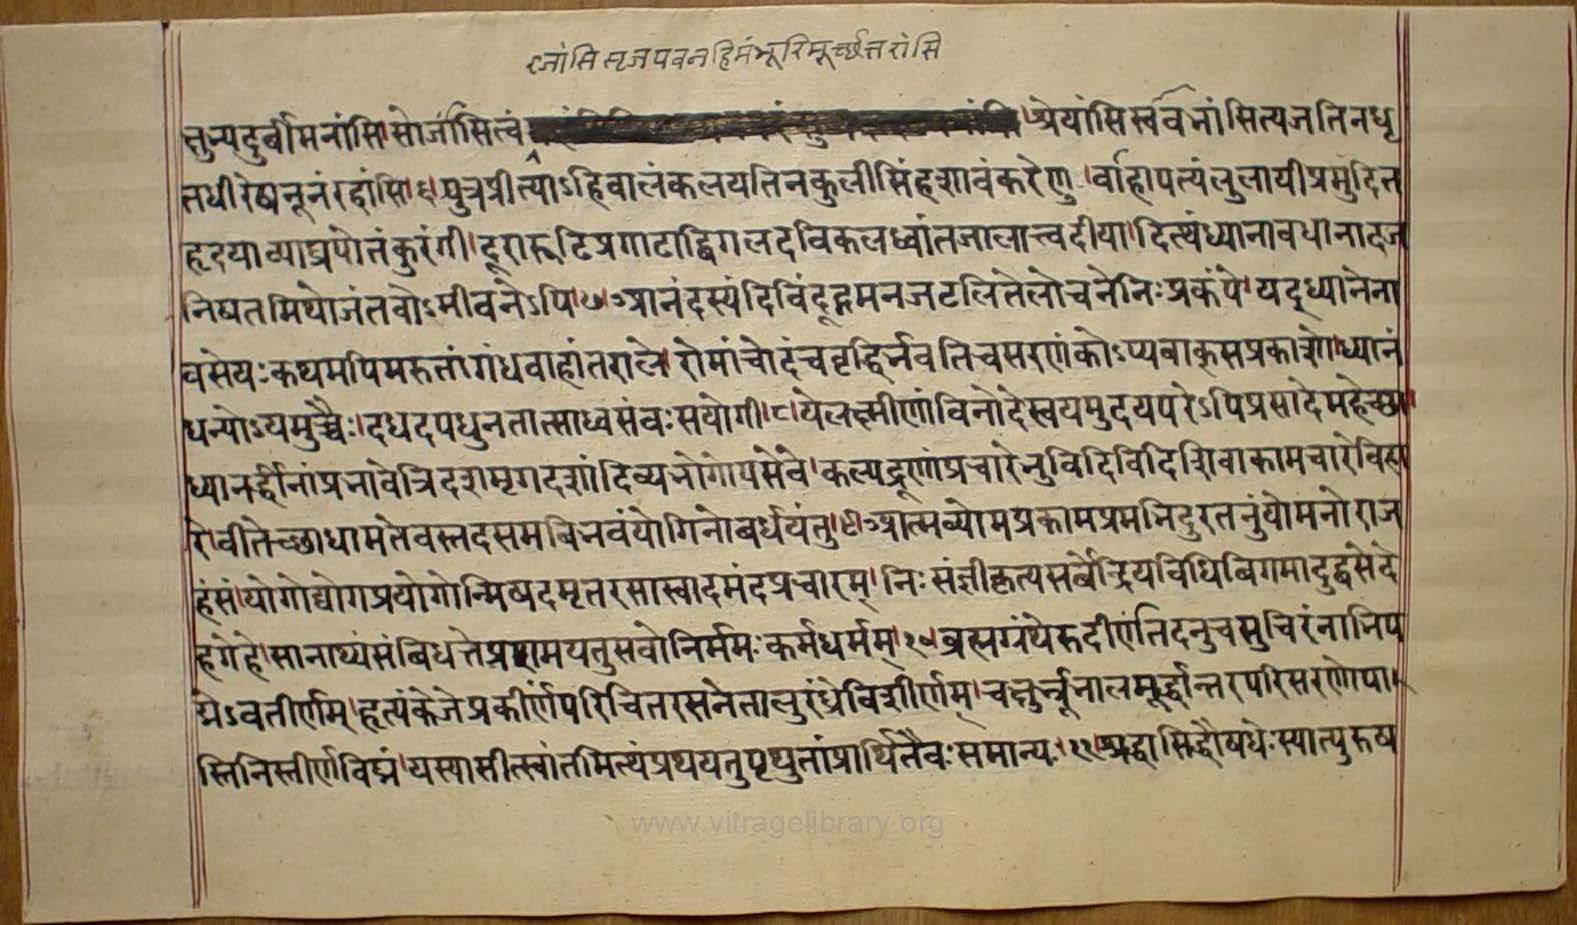 रजांसि सृज पवनहिमंभूरिमूर्च्छत्तरांसि
त्तुन्यदुर्वीमनांसि।सोर्जांसित्वं श्रेयांसिस्त्ववनांसित्यजतिनधृ
तधीरेष्यनूनंरहांसि।६।पुत्रप्रीत्याऽहिवालंकलयतिनकुलीसिंहशावंकरेणु।र्वाहापत्यंलुलायीप्रमुदित
हृदयाव्याघ्रपोतंकुरंगी।दूरारूढिप्रगाढाद्विगलदविकलध्वांतजालात्त्वदीया।दित्यंध्यानावधानादज
निघतमिथोजंतवोऽमीवनेऽपि।७।आनंदस्यंदिविंदूद्गमनजटलितेलोचनेनिःप्रकंपे।यद्ध्यानेना
वसेयःकथमपिमरुतांगंधवाहांतराले।रोमांचोदंचवृद्धिर्नवतिचसरणंकोऽप्यवाक्सप्रकाशो।ध्यानं
धन्योऽयमुच्चैः।दधदपधुनतात्साध्वसंवःसयोगी।८।येलक्ष्मीणांविनोदेस्वयमुदयपरेऽपिप्रसादेमहेच्छा।
ध्यानर्द्धीनांप्रभावेत्रिदशमृगदृशांदिव्यभोगोपसेवे।कल्पद्रूणांप्रचारेनुविदिविदिशिवाकामचारेविहा
रे।वीतेच्छाधामतेवस्तदसमबिनवंयोगिनोबर्धयंतु।९।आत्मव्योमप्रकामप्रमनिदुरतनुंयोमनोराज
हंसं।योगोद्योगप्रयोगोन्मिषदमृतरसास्वादमंदप्रचारम्।निःसंज्ञीकृत्यसर्बेंद्रियविधिबिगमादुद्वसेदे
हगेहे।सानाथ्यंसंबिधत्तेप्रशमयतुसवोनिर्ममःकर्मधर्मम्।१०।ब्रह्मग्रंथेरुदीर्णंतिदनुचसुचिरंनानिप
द्मेऽवतीर्णम्।हृत्पंकेजेप्रकीर्णंपरिचितरसनेतालुरंध्रेविशीर्णम्।चक्षुर्न्भ्रूनालमूर्द्धान्तरपरिसरणेपा
स्तिनिस्तीर्णविघ्नं।यस्यासीत्स्वांतमित्यंप्रथयतुपृथुतांप्रार्थितैवःसमान्यः।११।श्रद्धासिद्धौषधेःस्यात्पुरुष
www.vitragelibrary.org